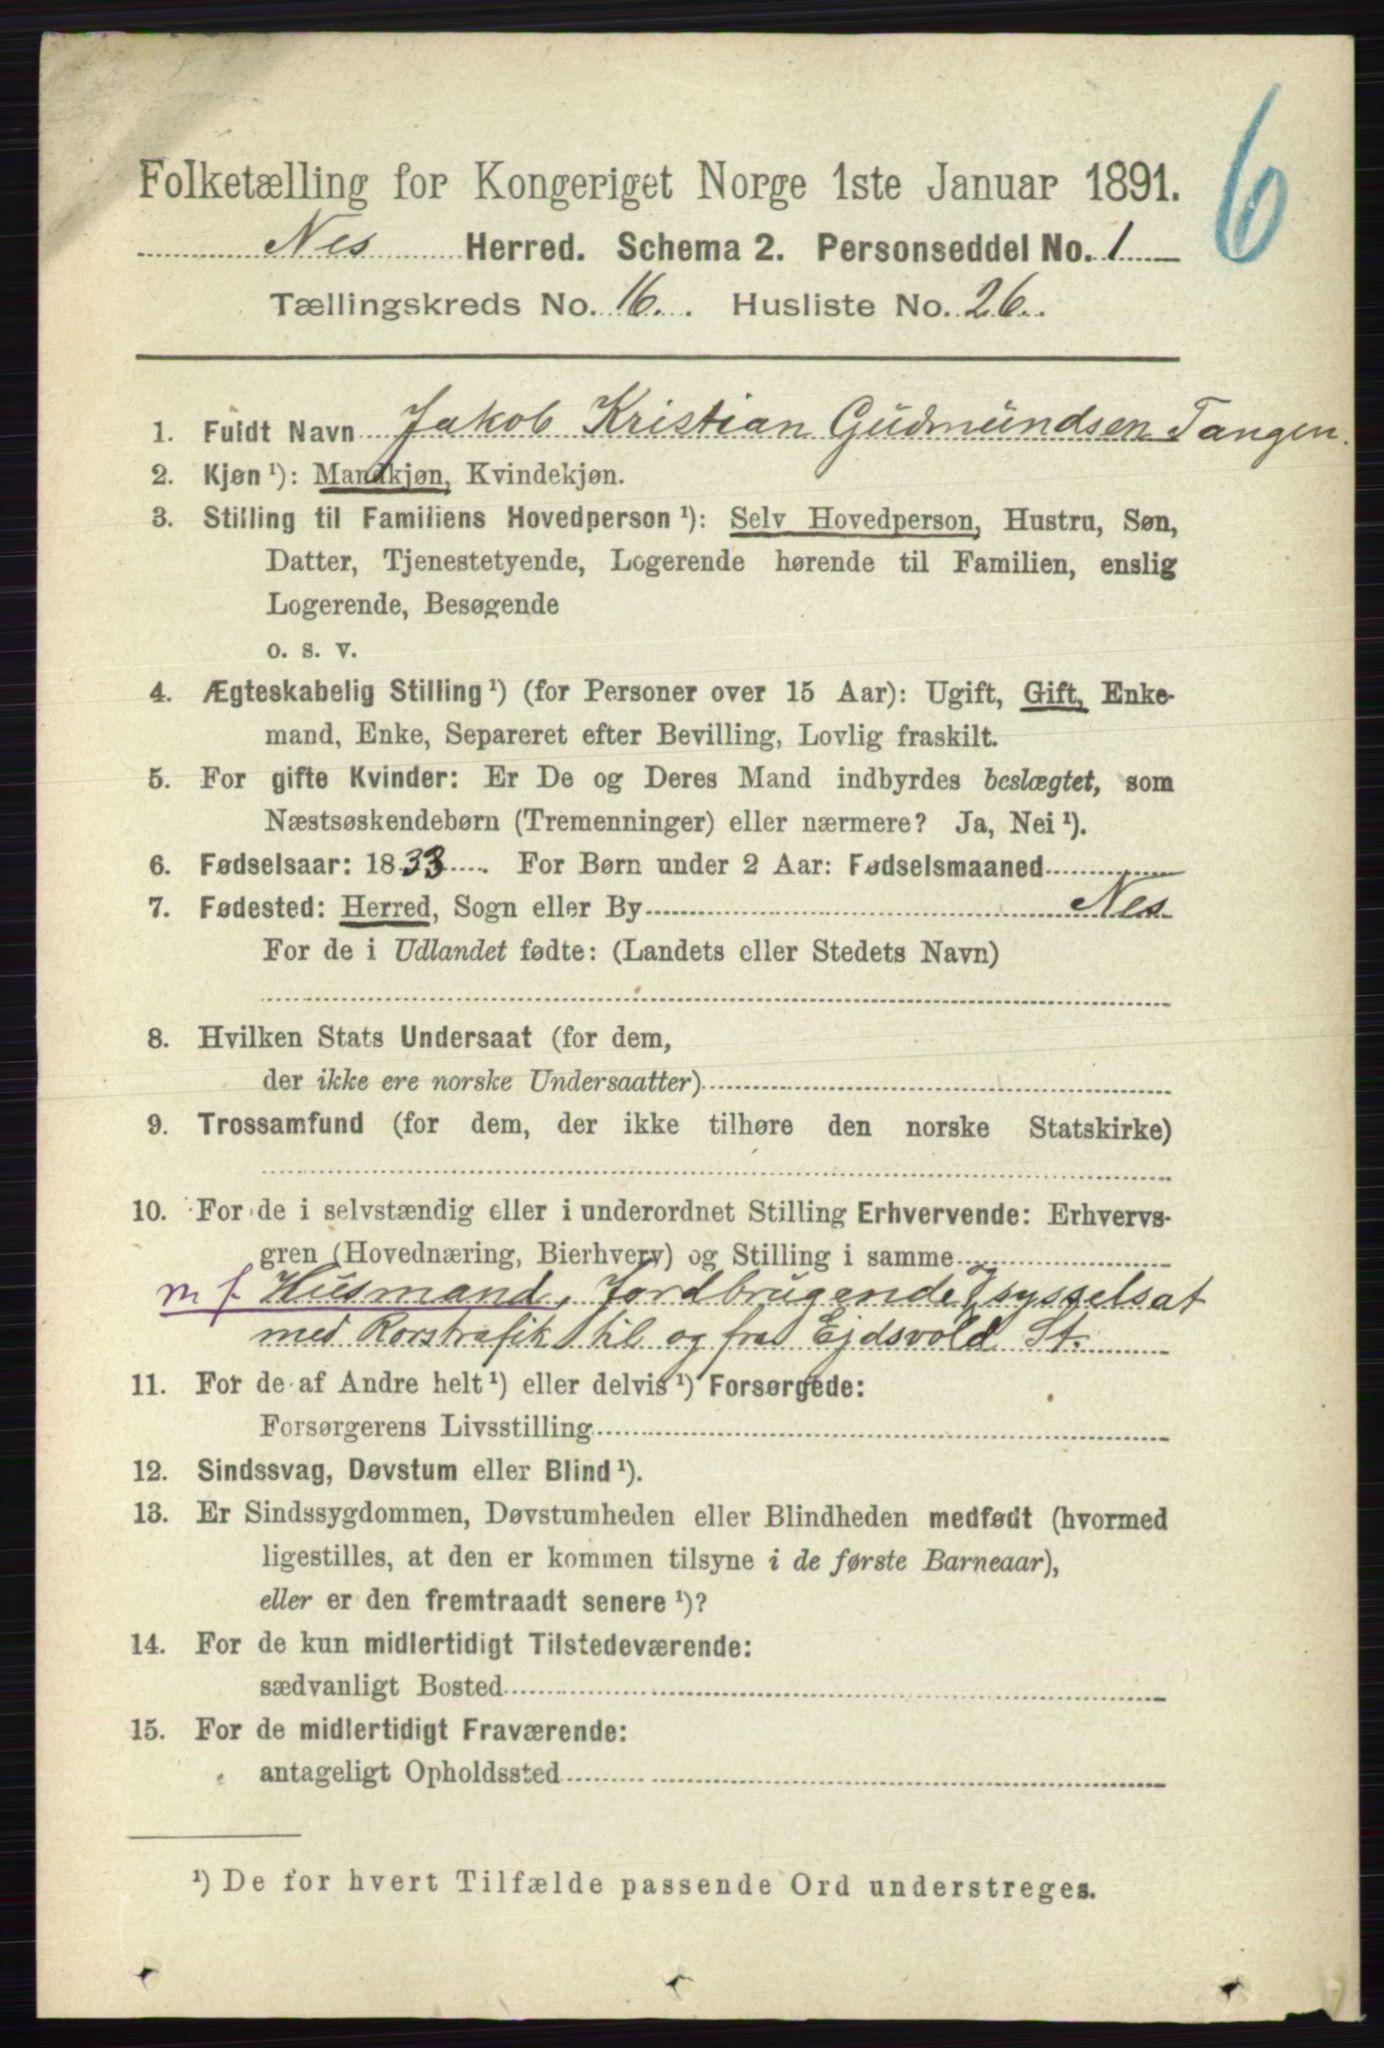 6
Folketælling for Kongeriget Norge 1ste Januar 1891.
Nes Herred. Schema 2. Personseddel No. 1
Tællingskreds No. 16. Husliste No. 26.
1. Fuldt Navn Jakob Kristian Gudmundsen Tangen.
2. Kjøn ¹): Mandkjøn, Kvindekjøn.
3. Stilling til Familiens Hovedperson ¹): Selv Hovedperson, Hustru, Søn,
Datter, Tjenestetyende, Logerende hørende til Familien, enslig
Logerende, Besøgende
o. s. v.
4. Ægteskabelig Stilling ¹) (for Personer over 15 Aar): Ugift, Gift, Enke-
mand, Enke, Separeret efter Bevilling, Lovlig fraskilt.
5. For gifte Kvinder: Er De og Deres Mand indbyrdes beslægtet, som
Næstsøskendebørn (Tremenninger) eller nærmere? Ja, Nei ¹).
6. Fødselsaar: 1833. For Børn under 2 Aar: Fødselsmaaned
7. Fødested: Herred, Sogn eller By Nes
For de i Udlandet fødte: (Landets eller Stedets Navn)
8. Hvilken Stats Undersaat (for dem,
der ikke ere norske Undersaatter)
9. Trossamfund (for dem, der ikke tilhøre den norske Statskirke)
10. For de i selvstændig eller i underordnet Stilling Erhvervende: Erhvervs-
gren (Hovednæring, Bierhverv) og Stilling i samme
m f Husmand, Jordbrugende, sysselsat
med Rorstrafik til og fra Ejdsvold St.
11. For de af Andre helt ¹) eller delvis ¹) Forsørgede:
Forsørgerens Livsstilling
12. Sindssvag, Døvstum eller Blind ¹).
13. Er Sindssygdommen, Døvstumheden eller Blindheden medfødt (hvormed
ligestilles, at den er kommen tilsyne i de første Barneaar),
eller er den fremtraadt senere ¹)?
14. For de kun midlertidigt Tilstedeværende:
sædvanligt Bosted
15. For de midlertidigt Fraværende:
antageligt Opholdssted
¹) De for hvert Tilfælde passende Ord understreges.